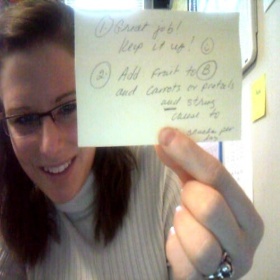 ① Great job!
Keep it up! ☺
② Add Fruit to Ⓑ
and Carrots or pretzels
and string
to
per